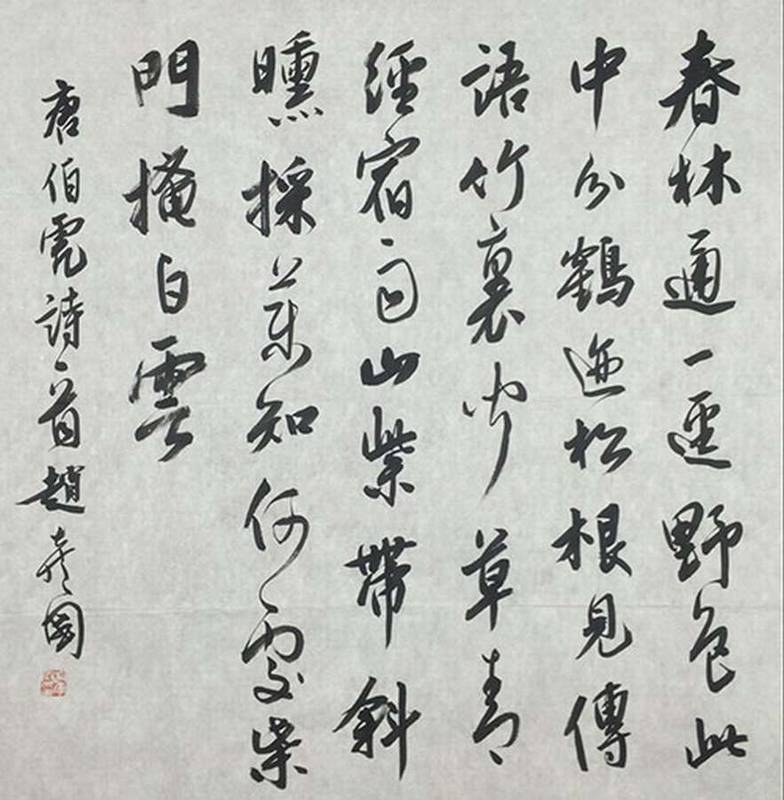 春林通一逕野色此
中分鶴迹松根見傳
語竹裏聞草青
經宿雨山紫帶斜
曛採藥知何處柴
門掩白雲
唐伯虎詩一首趙國